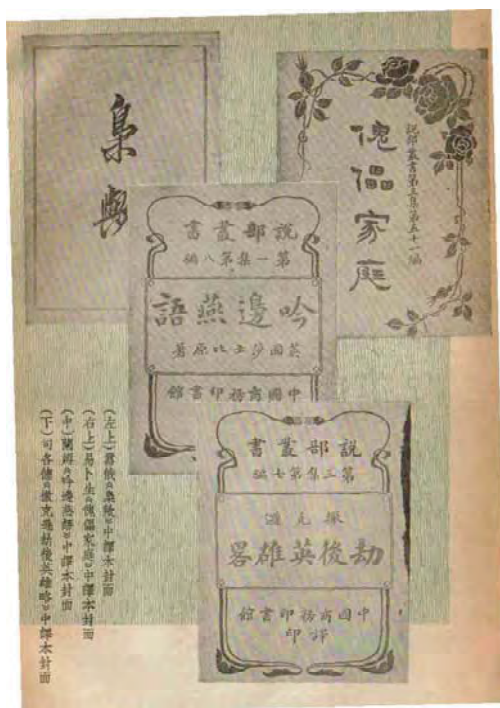 梟歟
說部叢書第三集第五十一編
傀儡家庭
說部叢書
第一集第八編
吟邊燕語
英國莎士比原著
中國商務印書館
說部叢書
第二集第七編
撒克遜
劫後英雄畧
中國商務印書館
譯印
(左上)囂俄“梟歟”中譯本封面
(右上)易卜生“傀儡家庭”中譯本封面
(中)蘭姆“吟邊燕語”中譯本封面
(下)司各德“撒克遜劫後英雄略”中譯本封面